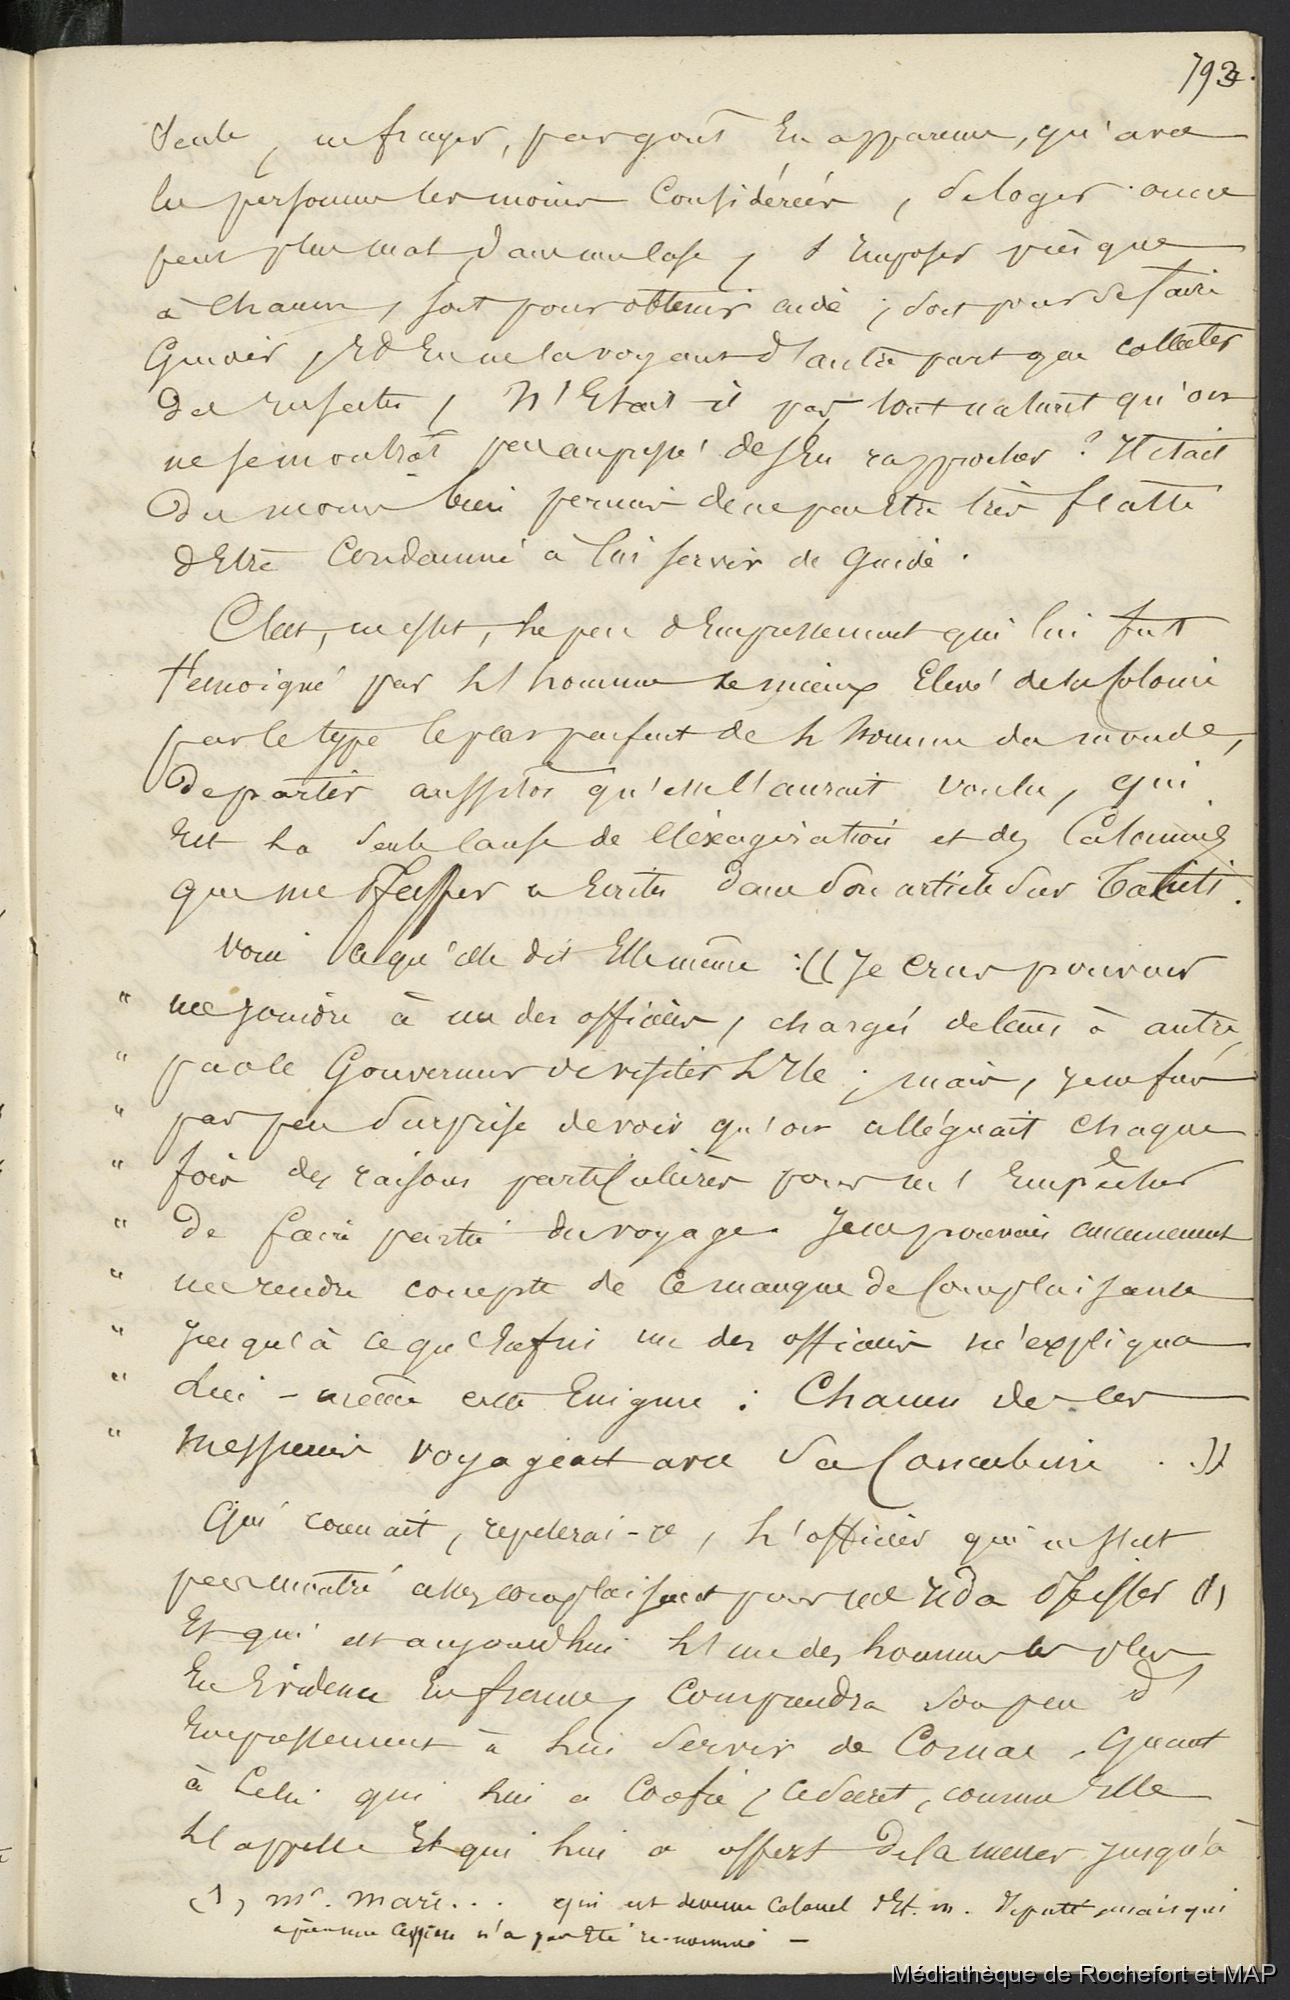 793.
Seule, ne frayer, par gout En apparence, qu'avec
les personnes les moins Considérées, se loger on ne
peut plus mal dans une case, s'Imposer presque
à Chacun, soit pour obtenir aide, soit pour se faire
Guider, Et En ne la voyant d'autre part que collecter
des Insectes, N'Etait-il pas tout naturel qu'on
ne se montrat peu empressé de s'En rapprocher? Il était
Du moins bien permis de ne pas Etre très flatté
d'Etre Condamné à lui servir de Guide.
C'est, en effet, le peu d'Empressement qui lui fut
témoigné par l'homme le mieux Elevé de la Colonie
par le type le plus parfait de l'homme du monde,
De partir aussitôt qu'elle l'aurait voulu, qui
Est la Seule Cause de l'éxagération et des Calomnies
que me Pfeiffer a Ecrites dans son article sur Tahiti.
Voici ce qu'elle dit Elle même : (( Je crus pouvoir
" me joindre à un des officiers, chargés de tems à autre,
" par le Gouverneur de visiter l'Ile ; mais, je ne fus
" pas peu Surprise de voir qu'on alléguait chaque
" fois des raisons particulières pour m'Empêcher
" De faire partie du voyage. Je ne pouvais aucunement
" me rendre compte de ce manque de Complaisance
" Jusqu'à ce qu'Enfin un des officiers m'expliqua
" Lui-même cette Enigme : Chacun de ces
" Messieurs voyageait avec Sa Concubine . ))
Qui connait, repeterai-je, l'officier qui s'est
peu montré assez complaisant pour me Ida Pfeiffer (1)
Et qui est aujourd'hui l'un des hommes les plus
En Evidence En france, comprendra son peu d'
Empressement à lui Servir de Cornac. Quant
à Celui qui lui a Confié, ce Secret, comme Elle
l'appelle Et qui lui a offert de la mener jusqu'à
(1) mr. Mari... qui est devenu Colonel d'Et. m. Député mais qui
n'a pas Eté re-nommé —
Médiathèque de Rochefort et MAP